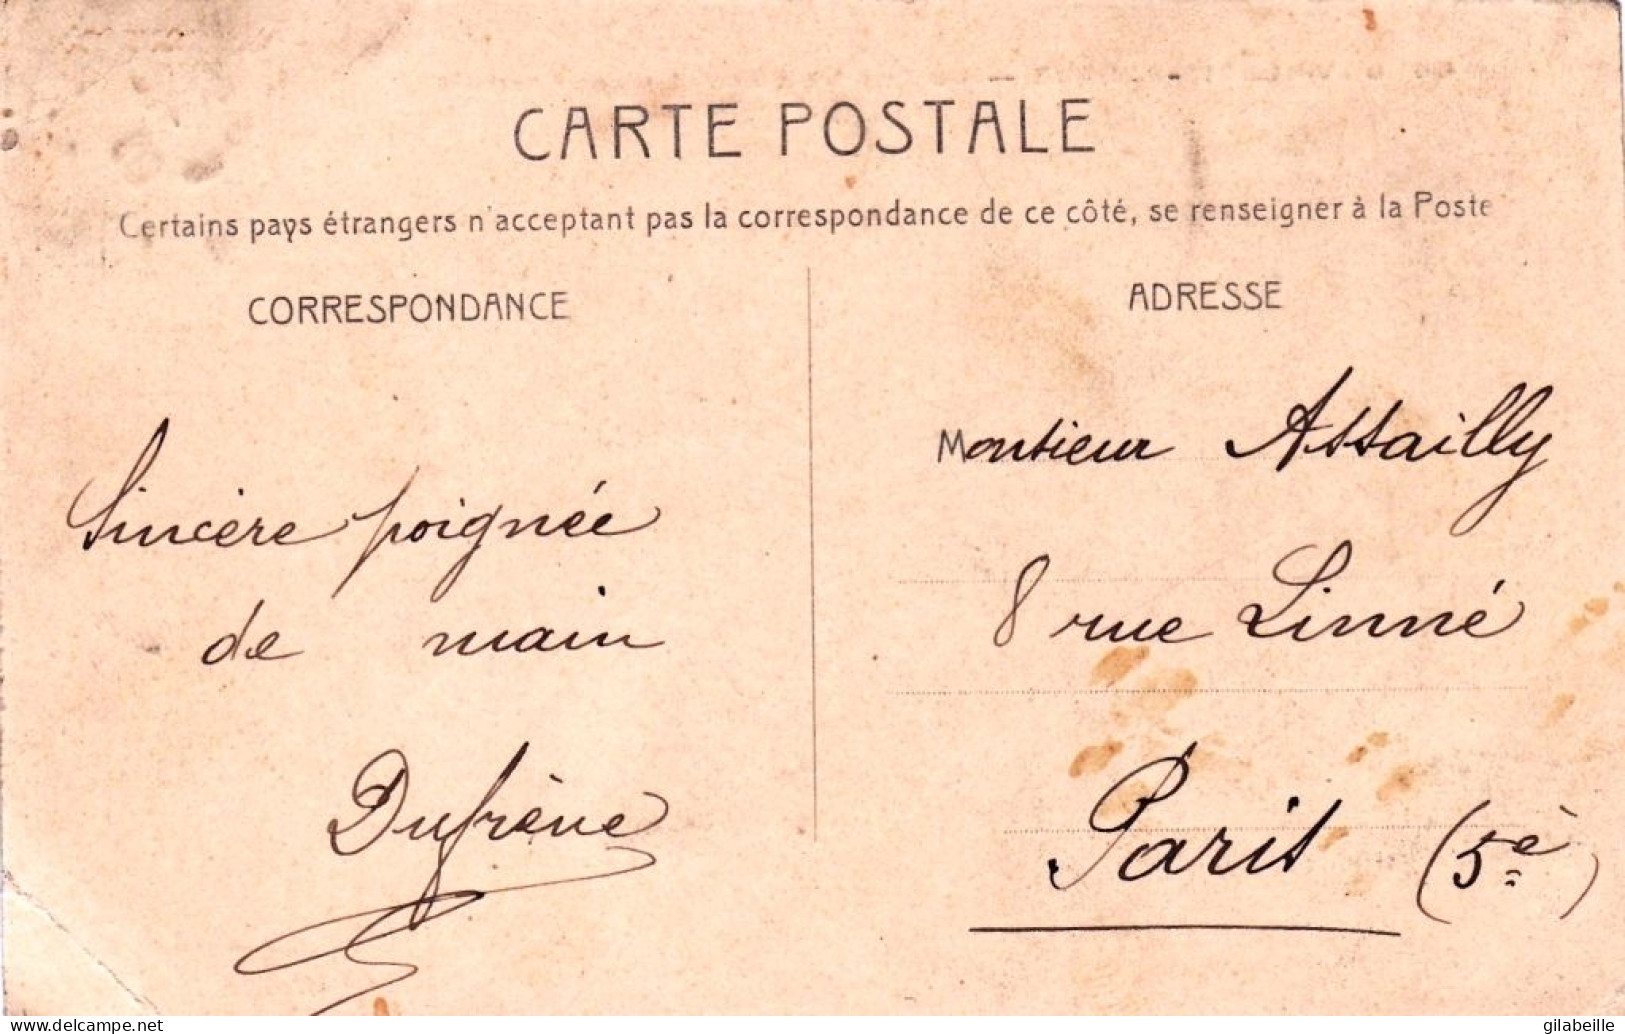 CARTE POSTALE
Certains pays étrangers n'acceptant pas la correspondance de ce côté, se renseigner à la Poste
CORRESPONDANCE
Sincère poignée
de main
Dufrène
ADRESSE
Monsieur Assailly
8 rue Linné
Paris (5è)
www.delcampe.net
gilabeille